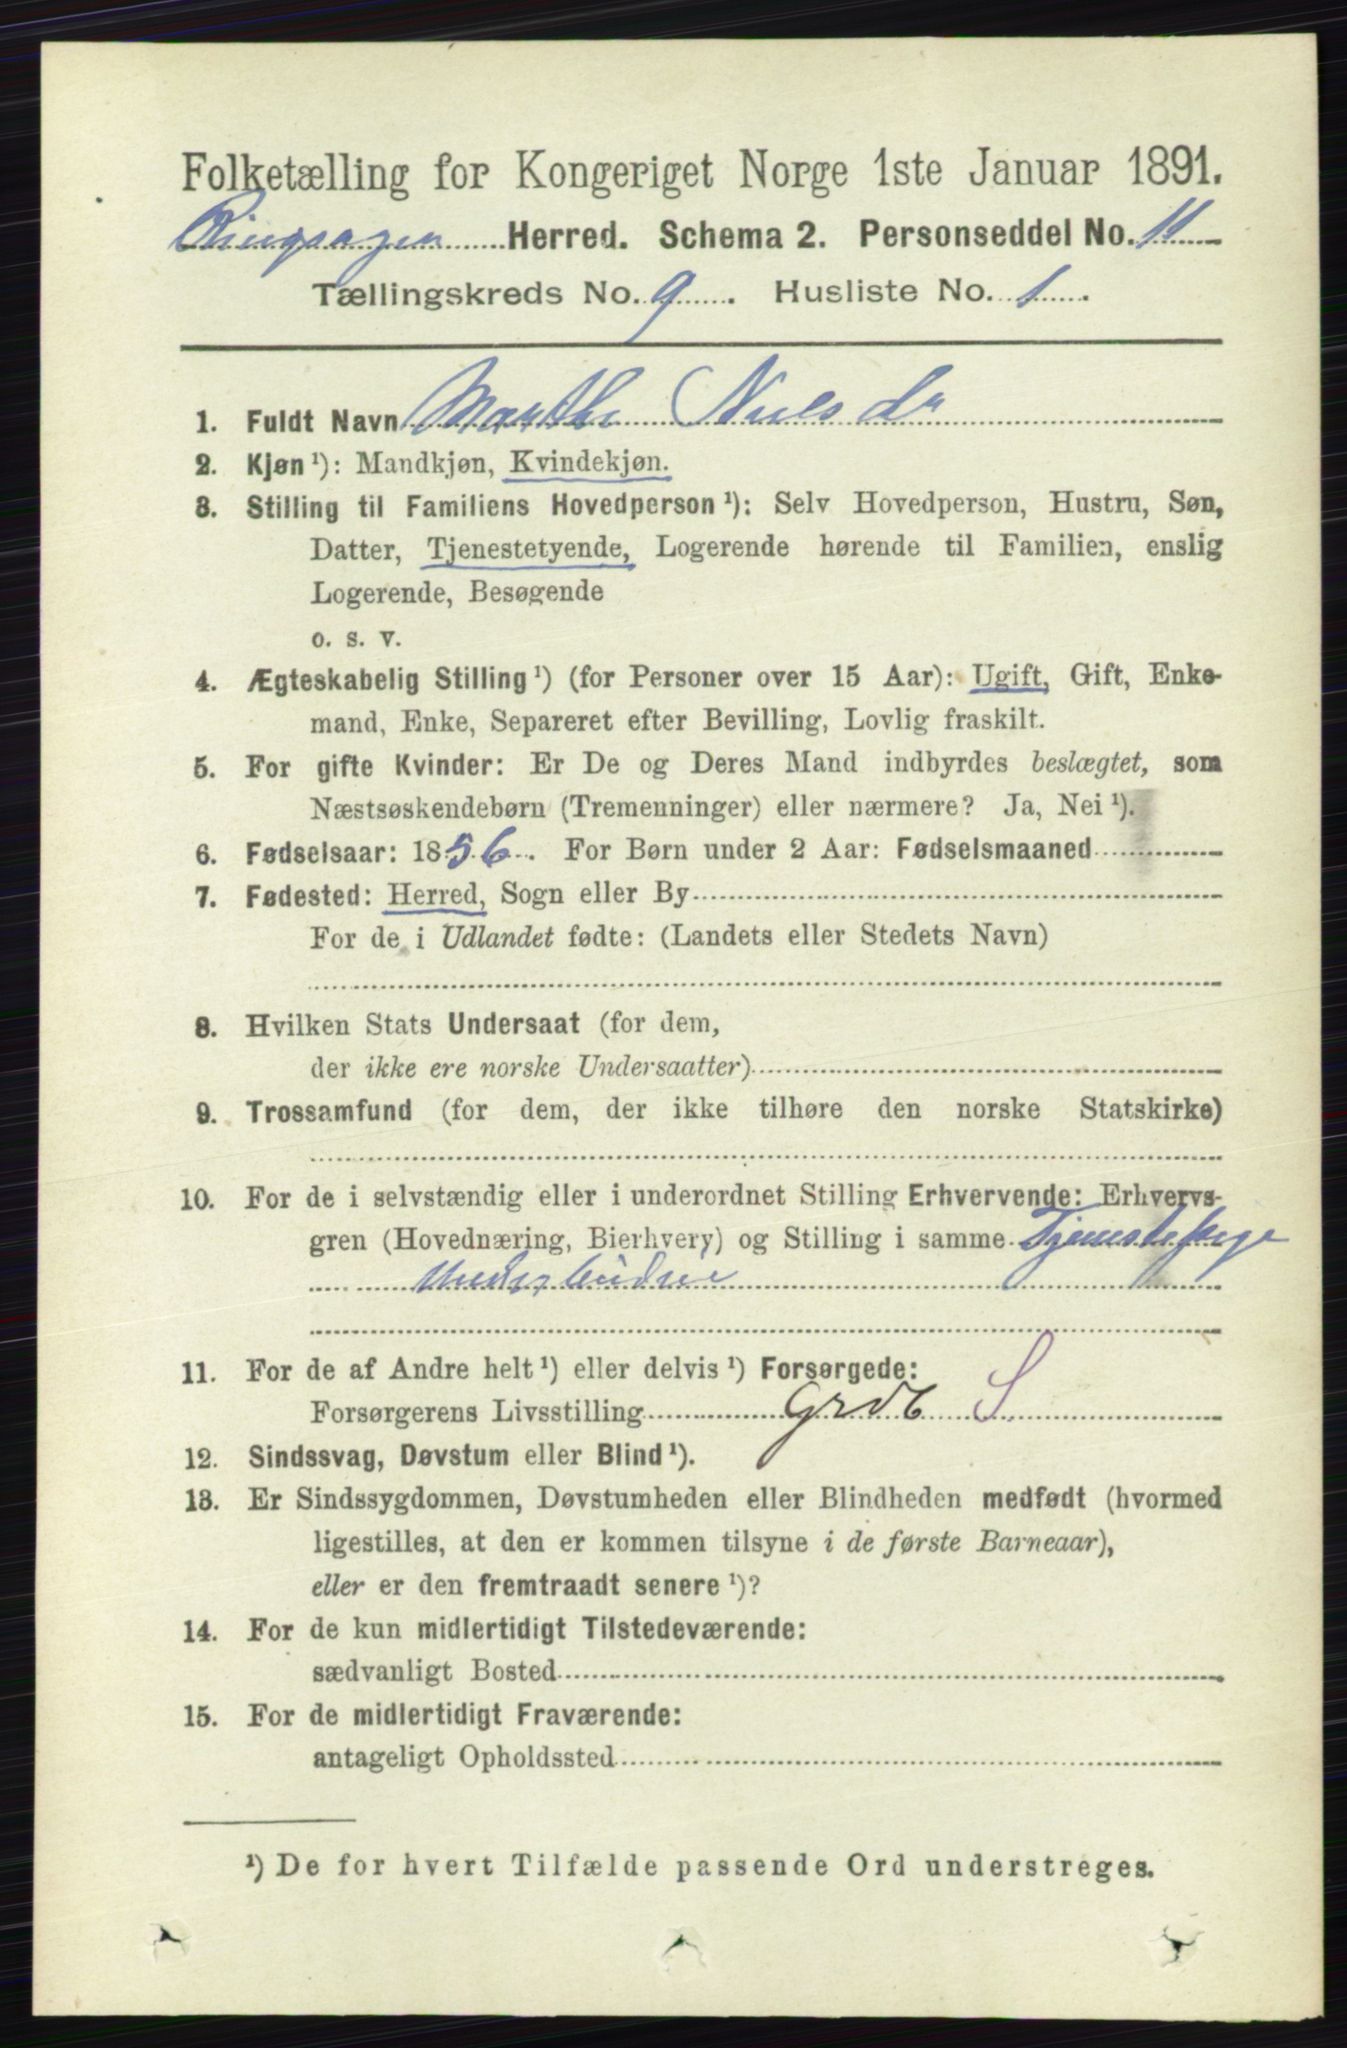 Folketælling for Kongeriget Norge 1ste Januar 1891.
Ringsager Herred. Schema 2. Personseddel No. 11
Tællingskreds No. 9. Husliste No. 1.
1. Fuldt Navn Marthe Nielsdr
2. Kjøn ¹): Mandkjøn, Kvindekjøn.
3. Stilling til Familiens Hovedperson ¹): Selv Hovedperson, Hustru, Søn,
Datter, Tjenestetyende, Logerende hørende til Familien, enslig
Logerende, Besøgende
o. s. v.
4. Ægteskabelig Stilling ¹) (for Personer over 15 Aar): Ugift, Gift, Enke-
mand, Enke, Separeret efter Bevilling, Lovlig fraskilt.
5. For gifte Kvinder: Er De og Deres Mand indbyrdes beslægtet, som
Næstsøskendebørn (Tremenninger) eller nærmere? Ja, Nei ¹).
6. Fødselsaar: 1856. For Børn under 2 Aar: Fødselsmaaned
7. Fødested: Herred, Sogn eller By
For de i Udlandet fødte: (Landets eller Stedets Navn)
8. Hvilken Stats Undersaat (for dem,
der ikke ere norske Undersaatter)
9. Trossamfund (for dem, der ikke tilhøre den norske Statskirke)
10. For de i selvstændig eller i underordnet Stilling Erhvervende: Erhvervs-
gren (Hovednæring, Bierhverv) og Stilling i samme Tjenestepige
11. For de af Andre helt ¹) eller delvis ¹) Forsørgede:
Forsørgerens Livsstilling Grdb S
12. Sindssvag, Døvstum eller Blind ¹).
13. Er Sindssygdommen, Døvstumheden eller Blindheden medfødt (hvormed
ligestilles, at den er kommen tilsyne i de første Barneaar),
eller er den fremtraadt senere ¹)?
14. For de kun midlertidigt Tilstedeværende:
sædvanligt Bosted
15. For de midlertidigt Fraværende:
antageligt Opholdssted
¹) De for hvert Tilfælde passende Ord understreges.